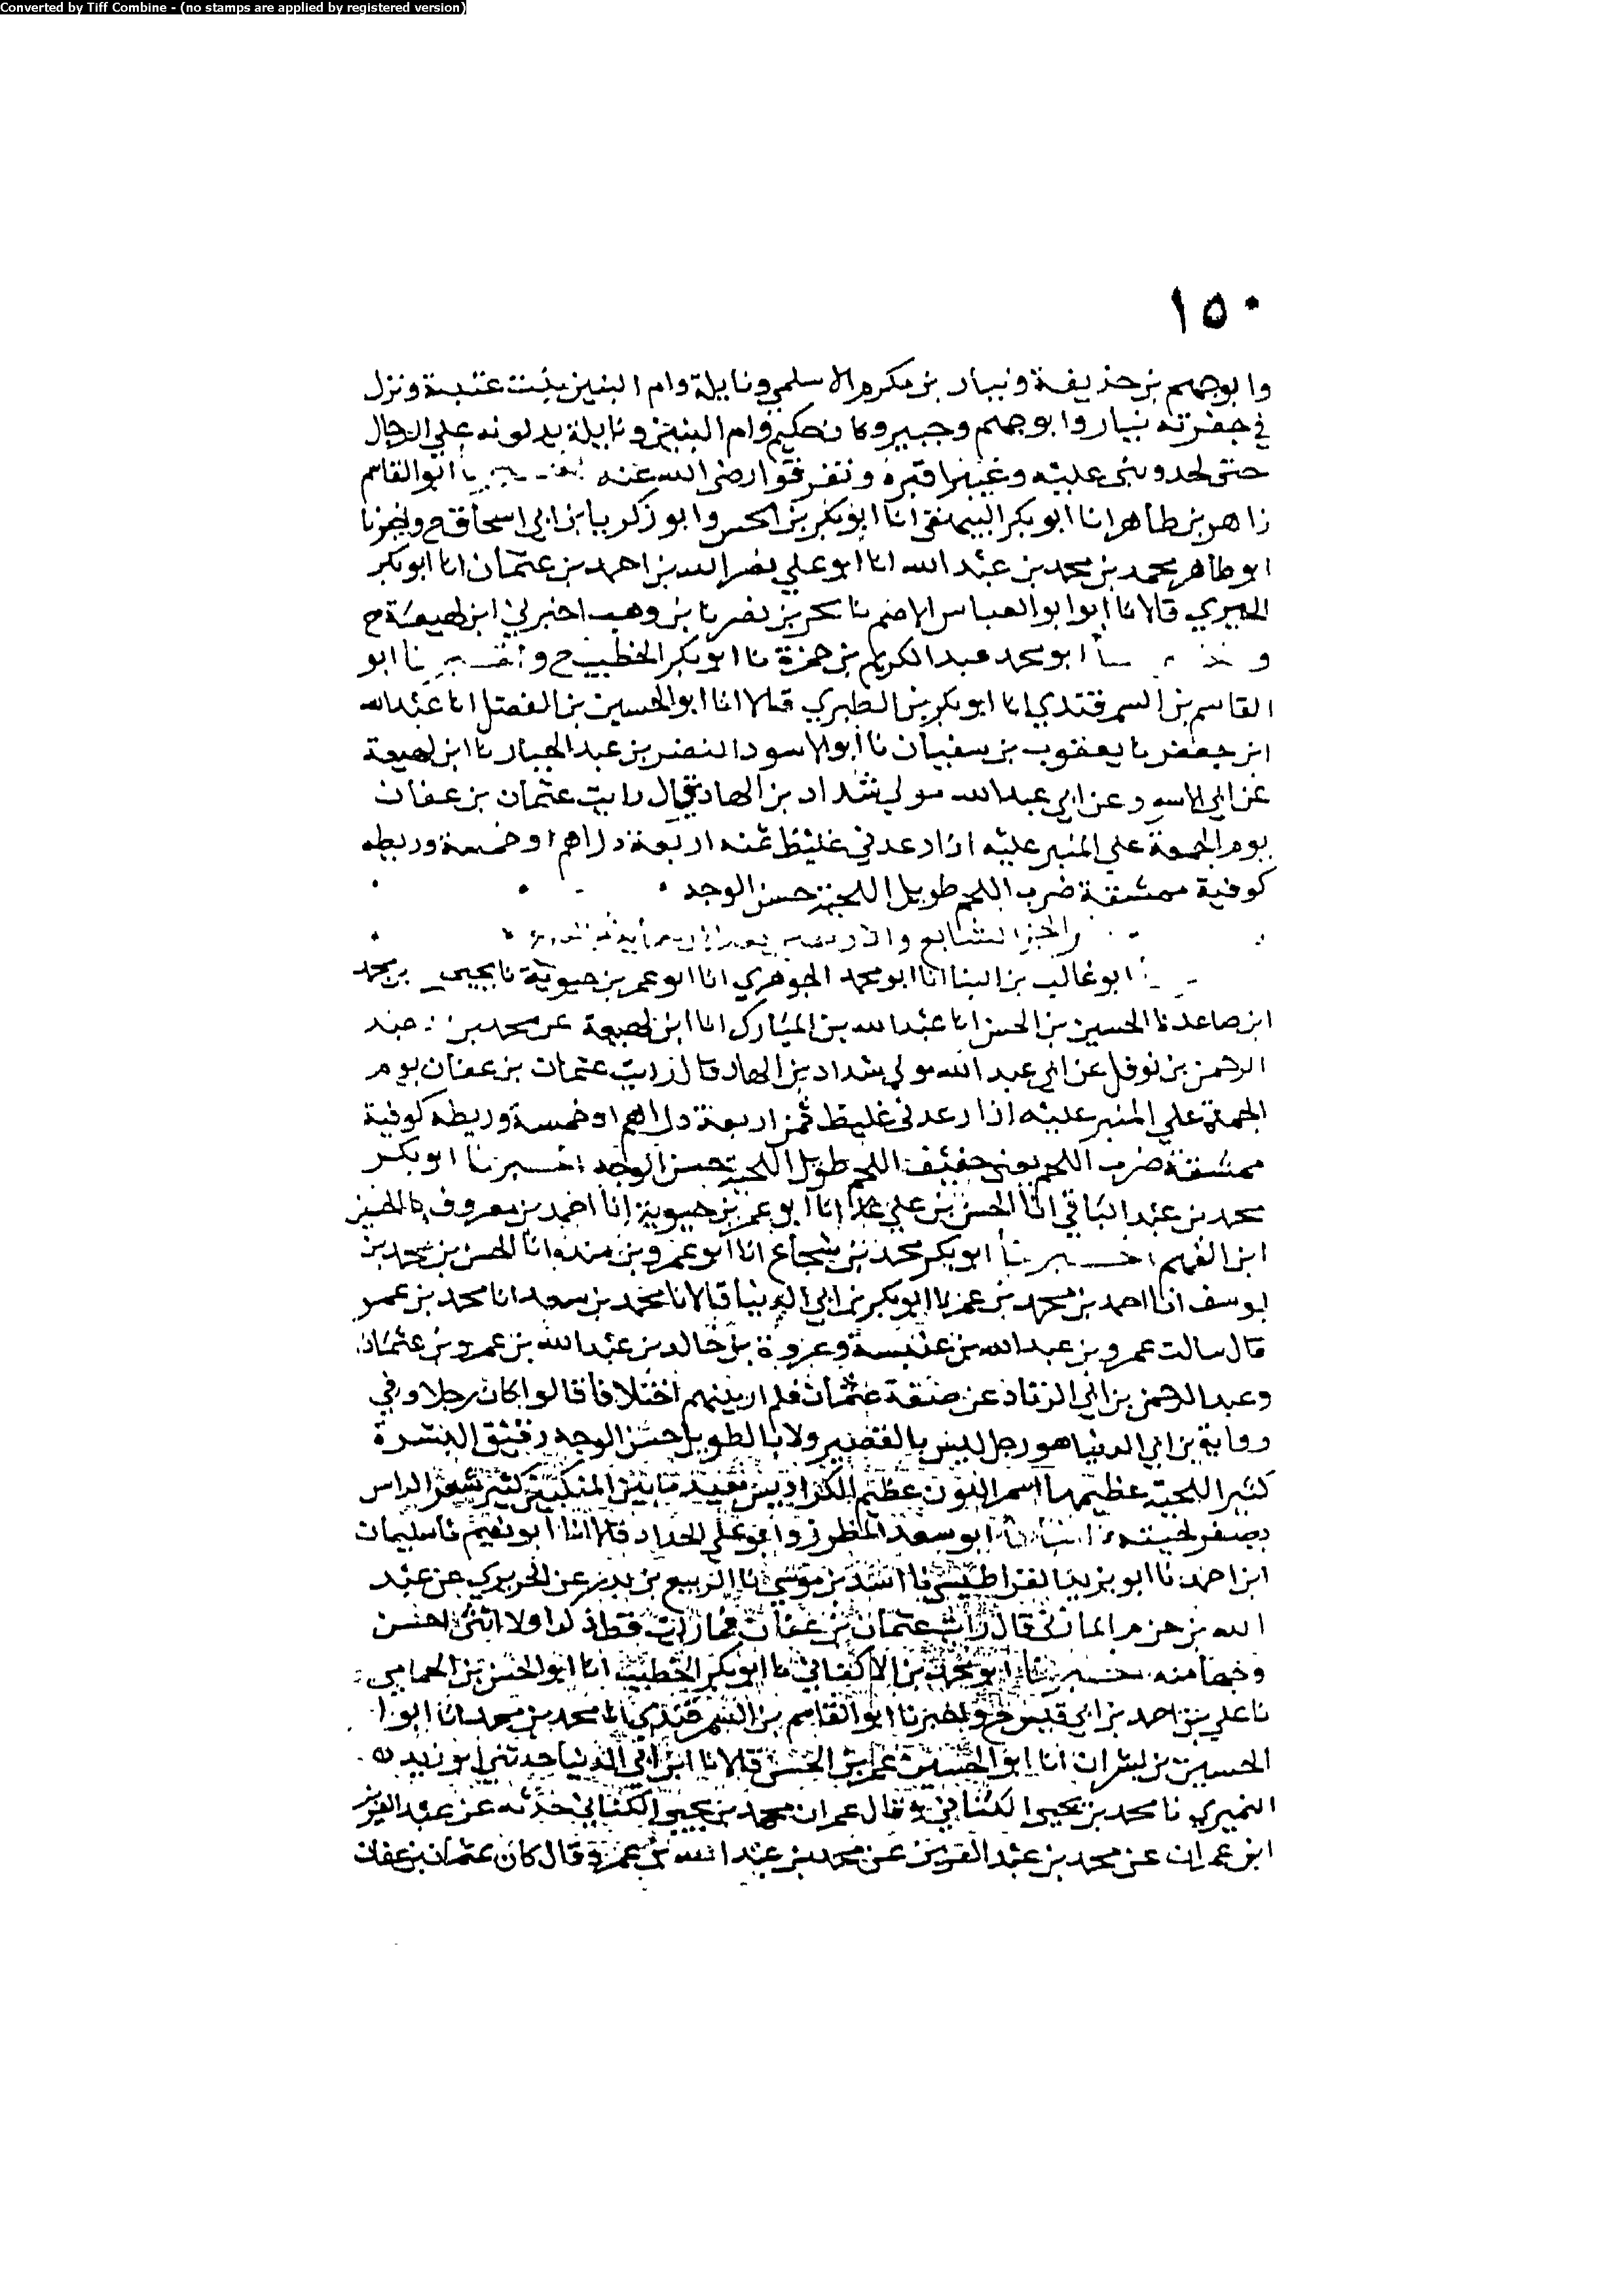 Converted by Tiff Combine - (no stamps are applied by registered version)
١٥٠
وابوجهم بن حذيفة ونيار بن مكرم الاسلمي ونايلة وام البنين بنت عتبة ونزل
في حفرته نيار وابوجهم وجبير وكان حكيم وام البنين ونايلة يدلونه علي الرجال
حتى لحد وبنى عليه وغيبوا قبره وتفرقوا رضي الله عنه ابوالقاسم
زاهر بن طاهر انا ابوبكر البيهقي انا ابوبكر بن الحسن وابوزكريا بن ابي اسحاق ح واخبرنا
ابوطاهر محمد بن محمد بن عبد الله انا ابوعلي نصرالله بن احمد بن عثمان انا ابوبكر
الحيري قالا نا ابوالعباس الاصم نا بحر بن نصر نا بن وهب اخبرني ابن لهيعة ح
ابومحمد عبدالكريم بن حمزة نا ابوبكر الخطيب ح و نا ابو
القاسم بن السمرقندي انا ابوبكر بن الطبري قالا انا ابوالحسين بن الفضل انا عبدالله
ابن جعفر نا يعقوب بن سفيان نا ابوالاسود النضر بن عبدالجبار نا ابن لهيعة
عن ابي الاسود عن ابي عبدالله مولي شداد بن الهاد قال رايت عثمان بن عفان
يوم الجمعة علي المنبر عليه ازار عدني غليظ ثمنه اربعة دراهم او خمسة وريطه
كوفية ممشقة ضرب اللحم طويل اللحية حسن الوجه
ابوغالب بن البنا انا ابومحمد الجوهري انا ابوعمر بن حيوية نا يحيى بن محمد
ابن صاعد نا الحسين بن الحسن انا عبدالله بن المبارك انا ابن لهيعة عن محمد بن عبد
الرحمن بن نوفل عن ابي عبد الله مولي شداد بن الهاد قال رايت عثمان بن عفان يوم
الجمعة علي المنبر عليه ازار عدني غليظ ثمن اربعة دراهم او خمسة وريطه كوفية
ممشقة ضرب اللحم يعني خفيف اللحم طويل اللحية حسن الوجه اخبرنا ابوبكر
محمد بن عبد الباقي انا الحسن بن علي انا ابوعمر بن حيوية انا احمد بن معروف نا الحسين
ابن الفهم اخبرنا ابوبكر محمد بن شجاع انا ابوعمرو بن منده انا الحسن بن محمد بن
يوسف انا احمد بن محمد بن عمر نا ابوبكر بن ابي الدنيا قالا نا محمد بن سعد انا محمد بن عمر
قال سالت عمرو بن عبدالله بن عنبسة وعروة بن خالد بن عبدالله بن عمرو بن عثمان
وعبدالرحمن بن ابي الزناد عن صفة عثمان فلم ار بينهم اختلافا قالوا كان رجلا وفي
رواية بن ابي الدنيا هو رجل ليس بالقصير ولا بالطويل حسن الوجه رقيق البشرة
كثير اللحية عظيمها اسمر اللون عظيم الكراديس بعيد ما بين المنكبين كثير شعر الراس
يصفر لحيته ابوسعد المطرز وابوعلي الحداد قالا انا ابونعيم نا سليمان
ابن احمد نا ابويزيد القراطيسي نا اسد بن موسي نا الربيع بن بدر عن الجريري عن عبد
الله بن حزم المازني قال رايت عثمان بن عفان فما رايت قط ذكرا ولا انثى احسن
وجها منه اخبرنا ابومحمد بن الاكفاني نا ابوبكر الخطيب انا ابوالحسن بن الحمامي
نا علي بن احمد بن ابي قيس ح واخبرنا ابوالقاسم بن السمرقندي انا محمد بن محمد انا ابوا
الحسين بن بشران انا ابوالحسين عمر بن الحسن قالا نا ابن ابي الدنيا حدثني ابوزيد
النميري نا محمد بن يحيى الكناني وقال عمران محمد بن يحيى الكناني حدثه عن عبدالعزيز
ابن عمران عن محمد بن عبدالعزيز عن محمد بن عبدا لله بن عمرو قال كان عثمان بن عفان